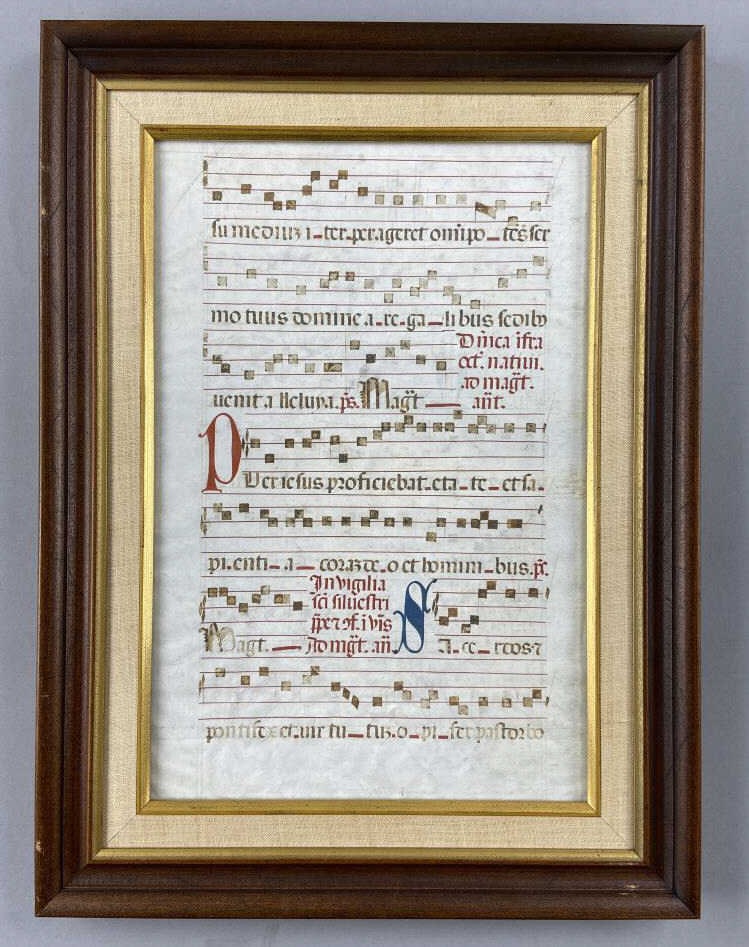 su medium i-ter-per-ageret omīpo-tēs ser
mo tuus domine a-re-ga-li bus sedibꝰ
Dn̄ica īfra
oct̄. natiui.
ad maḡt.
uenit a lleluya. p̄s. Maḡt — an̄t.
PUer iesus proficiebat-eta-te-et sa-
pi-enti-a-coraz de-o et homini-bus. p̄s.
In vigilia
scī siluestri
Maḡt. — Ad maḡt. an̄. SA-ce-rdos ⁊
pontifex et uir tu-tuz-o-pi-fex pastor bo